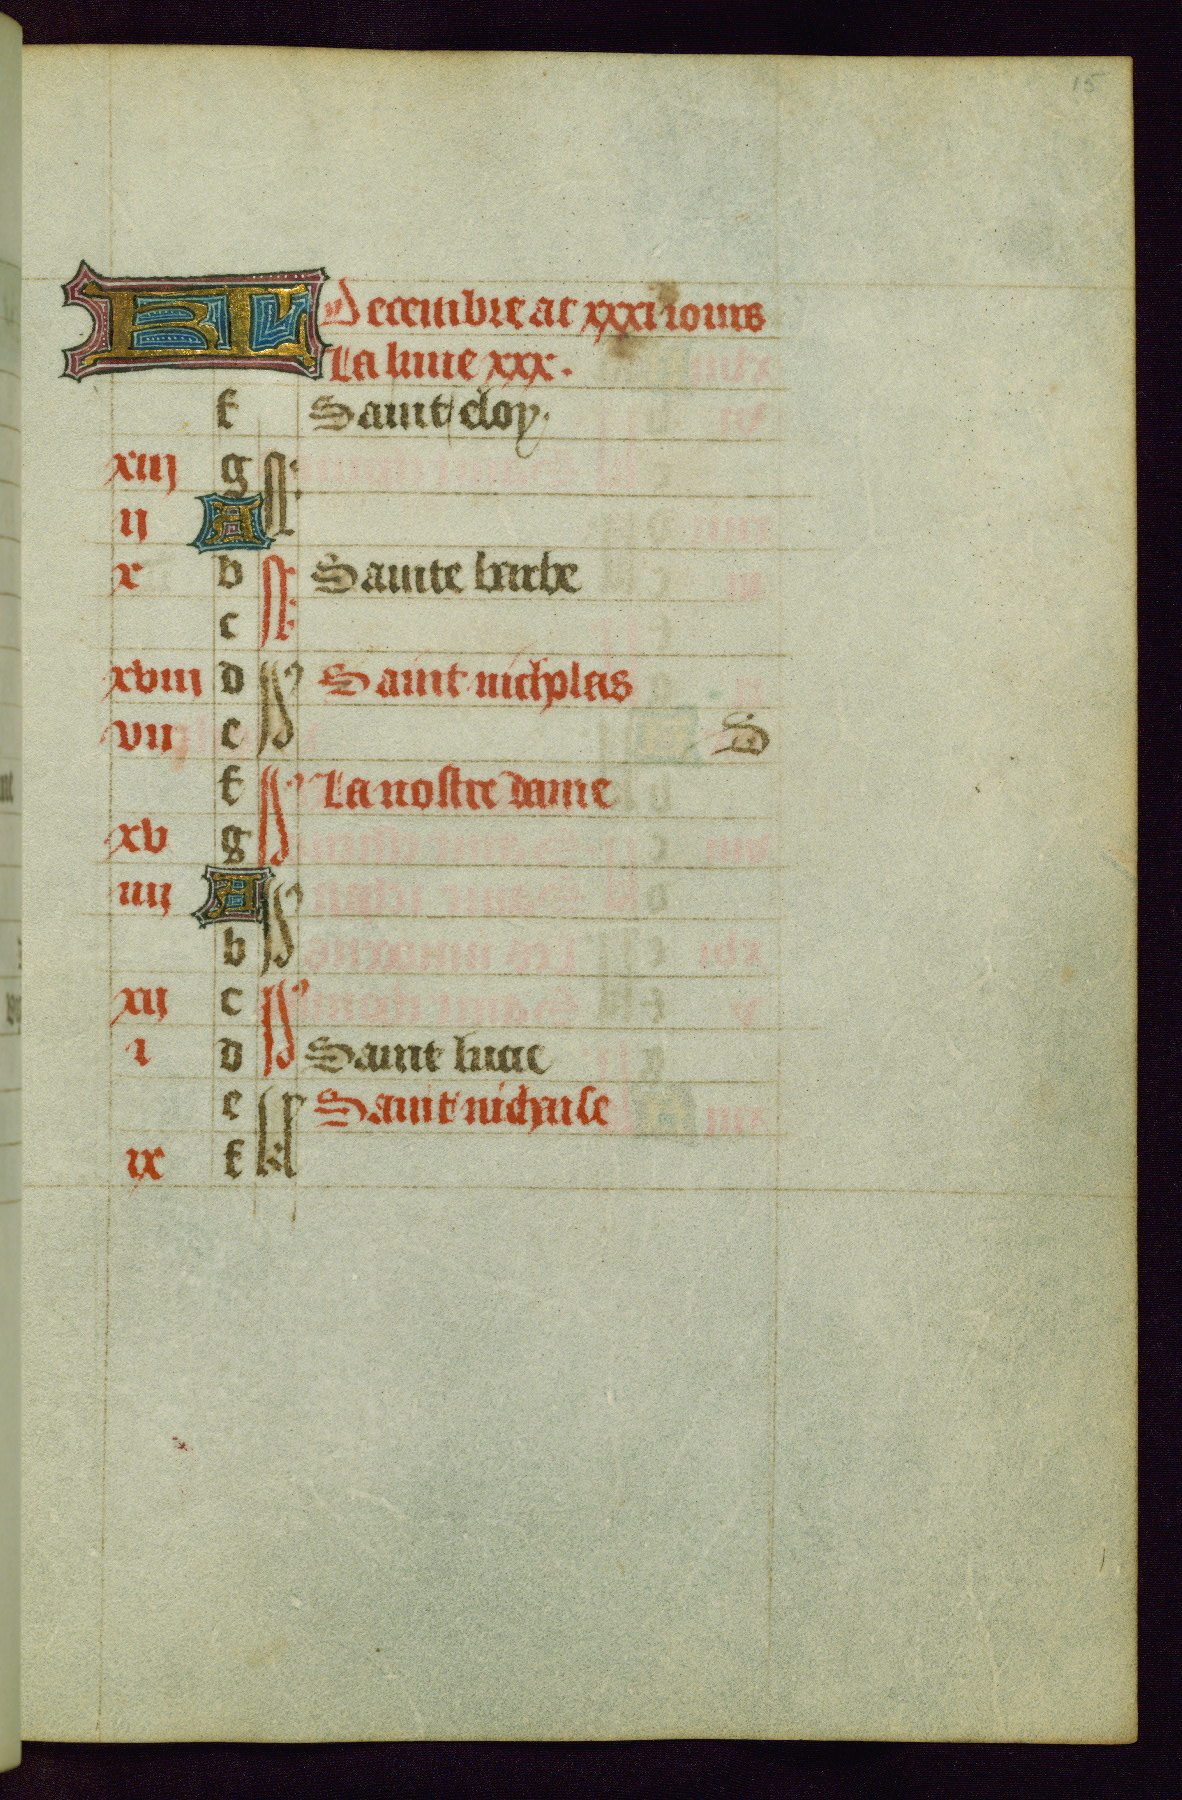 15
KL Decembre ac xxxi iours
La lune xxx.
f Saint eloy.
xiij g
ij A
x b Sainte barbe
c
xviii d Saint nicholas
vij e S
f La nostre dame
xv g
iiij A
b
xij c
i d Saint lucie
e Saint nichaise
ix f